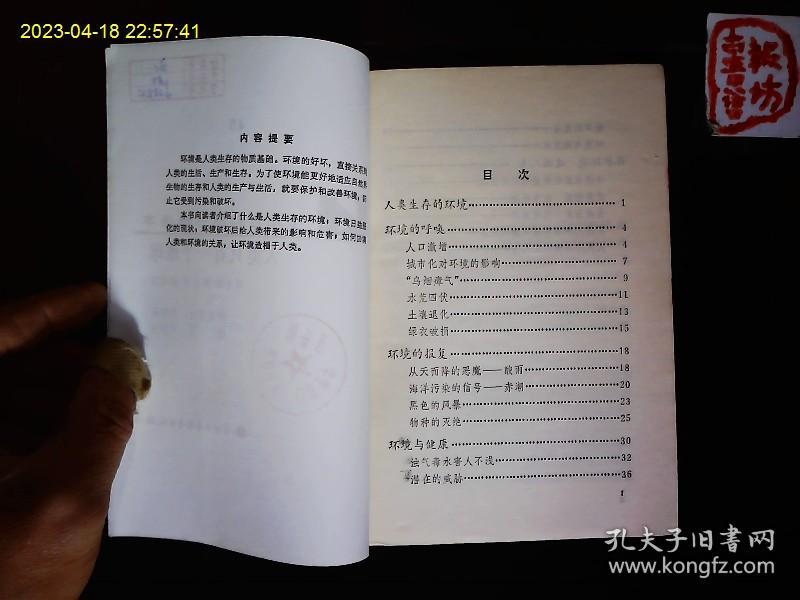 2023-04-18 22:57:41
内容提要
环境是人类生存的物质基础。环境的好坏，直接关系
人类的生活、生产和生存。为了使环境能更好地适应自然
生物的生存和人类的生产与生活，就要保护和改善环境，
止它受到污染和破坏。
本书向读者介绍了什么是人类生存的环境；环境日益
化的现状；环境破坏后给人类带来的影响和危害；如何
人类和环境的关系，让环境造福于人类。
目 次
人类生存的环境 1
环境的呼唤 4
人口激增 4
城市化对环境的影响 7
“乌烟瘴气” 9
水荒四伏 11
土壤退化 13
绿衣破损 15
环境的报复 18
从天而降的恶魔——酸雨 18
海洋污染的信号——赤潮 20
黑色的风暴 23
物种的灭绝 25
环境与健康 30
浊气毒水害人不浅 32
潜在的威胁 36
1
孔夫子旧书网
www.kongfz.com